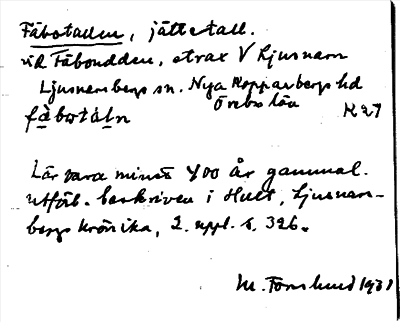 Fäbotallen, jättetall.
vid Fäboudden, strax V Ljusnarn
Ljusnarsbergs sn. Nya Kopparbergs hd
Örebro län
fàbotáln K 27
Lär vara minst 400 år gammal.
Utförl. beskriven i Hult, Ljusnars-
bergs krönika, 2. uppl. s. 326.
M. Fornlund 1931